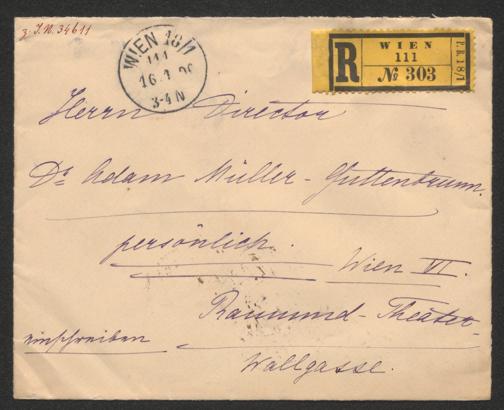 z. I.N. 34611
WIEN 18/1
111
16.
3-4 N
R
WIEN
111
№ 303
F.R. 18/1
Herrn Director
Dr Adam Müller-Guttenbrunn.
persönlich.
Wien VI.
Raimund-Theater
einschreiben
Wallgasse.